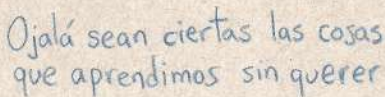 Ojalá sean ciertas las cosas
que aprendimos sin querer